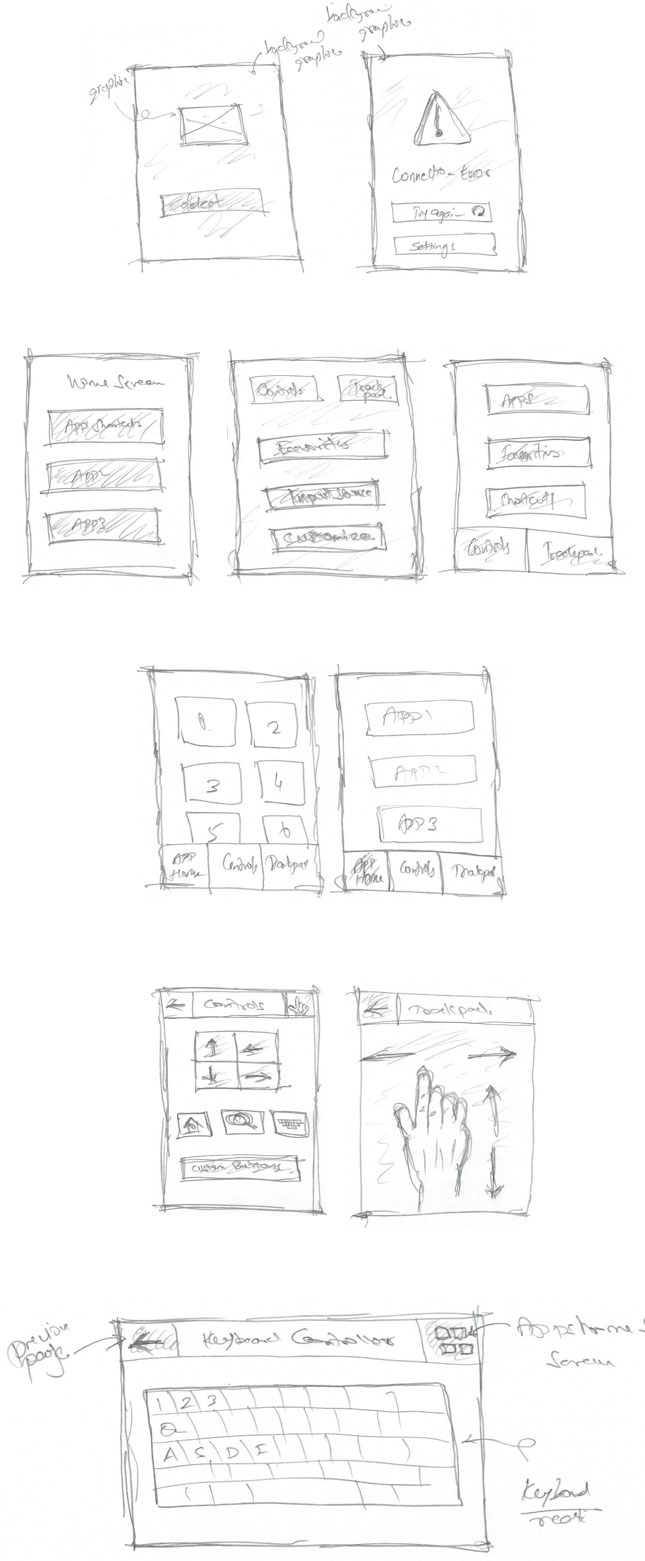 graphic
graphic
graphic
Connection Error
Try again
Settings
Home Screen
App Shortcuts
APP2
APP3
Controls
Track
pad.
Favourites
Input Source
Customize
APPS
Favourites
Controls
Trackpad.
1
2
3
4
5
6
APP
Home
Controls
Trackpad
APP1
APP2
APP3
APP
Home
Controls
Trackpad
Controls
Trackpad
Custom Buttons
Previous
page
Keyboard Controller
Apps Home
Screen
1 2 3
Q
A S D F
Keyboard